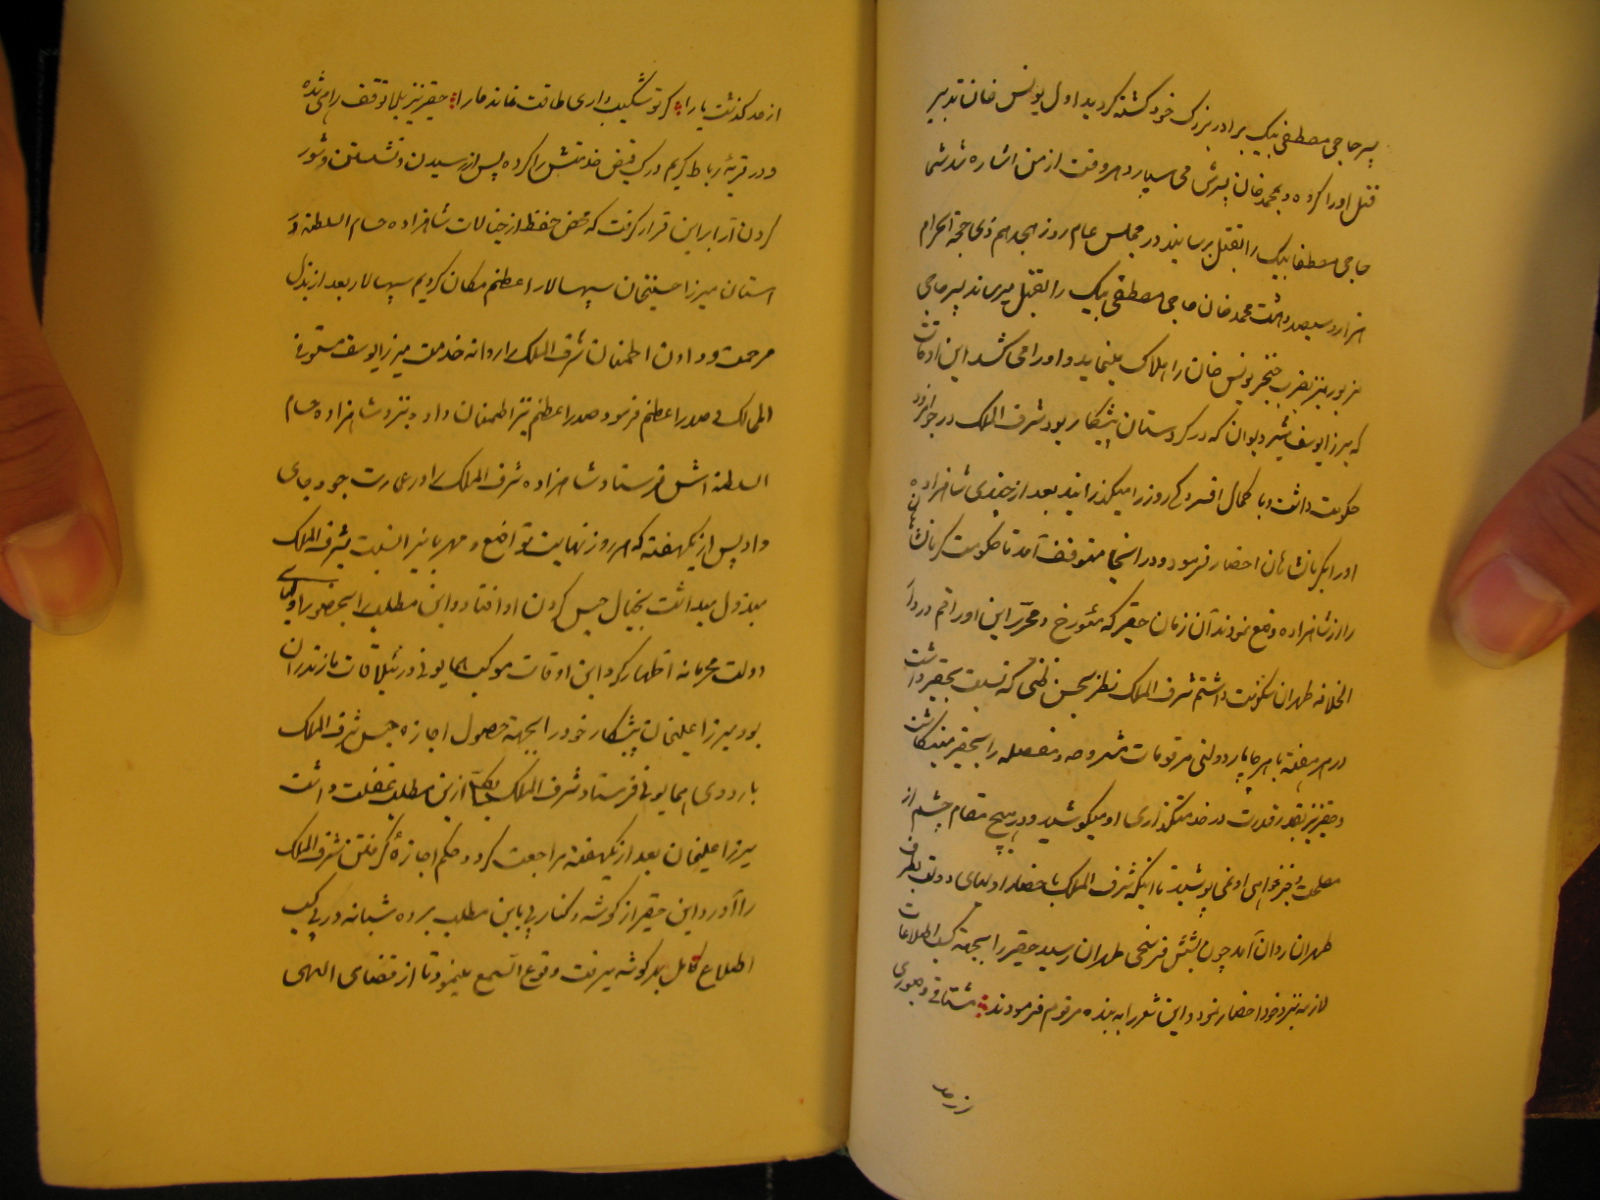 پسر حاجی مصطفی بیک برادر بزرک خود کشته کردید اول یونس خان تدبیر
قتل او را کرده و بمحمد خان پسرش می سپارد هر وقت از من اشاره شد شما
حاجی مصطفا بیک را بقتل برسانید در مجلس عام روز هجدهم ذی حجة الحرام
هزار و سیصد و هشت محمد خان حاجی مصطفی بیک را بقتل میرساند پسر حاجی
مزبور نیز بضرب خنجر یونس خان را هلاک مینماید و او را می کشد این اوقات
که میرزا یوسف مشیر دیوان که در کردستان پیشکار بود شرف الملک در جوانرود
حکومت داشت و با کمال افسردکی روز را میکذرانید بعد از چندی شاهزاده
او را بکرمانشاهان احضار فرمود و در انجا متوقف آمد تا حکومت کرمانشاهان
را از شاهزاده وضع نمودند آن زمان حقیر که مئورخ و محرر این اوراقم در دار
الخلافه طهران سکونت داشتم شرف الملک نظر بحسن ظنی که نسبت بحقیر داشت
در هر هفته با هر چاپار دولتی مرقومات مشروحه و مفصله را بحقیر مینکاشت
و حقیر نیز بقدر قدرت در خدمتکذاری او میکوشید و در هیچ مقام چشم از
مصلحت و خیرخواهی او نمی پوشید تا اینکه شرف الملک باحضار اولیای دولت بطرف
طهران روان آمد چون بشش فرسخی طهران رسید حقیر را بجهة کسب اطلاعات
لازمه بنزد خود احضار نمود و این شعر را به بنده مرقوم فرمودند مشتاقی و صبوری
از حد
از حد کذشت یارا کر تو شکیب داری طاقت نماند ما را حقیر نیز بلا توقف راهی شده
و در قریهٔ رباط کریم درک فیض خدمتش را کرده پس از رسیدن و نشستن و شور
کردن آرا بر این قرار کرفت که محض حفظ از خیالات شاهزاده حسام السلطنه در
استان میرزا حسینخان سپهسالار اعظم مکان کردیم سپهسالار بعد از بذل
مرحمت و دادن اطمنان شرف الملک را روانه خدمت میرزا یوسف مستوفی
الممالک صدر اعظم فرمود صدر اعظم نیز اطمنان داد و بنزد شاهزاده حسام
السلطنه اش فرستاد شاهزاده شرف الملک را در عمارت خود جای
داد پس از یکهفته که هر روز نهایت تواضع و مهربانیرا نسبت بشرف الملک
مبذول میداشت بخیال حبس کردن او افتاد و این مطلب را بحضور اولیای
دولت محرمانه اظهار کرد این اوقات موکب همایونی در ئیلاقات مازندران
بود میرزا علیخان پیشکار خود را بجهة حصول اجازه حبس شرف الملک
باردوی همایونی فرستاد شرف الملک از ین مطلب غفلت داشت
میرزا علیخان بعد از یکهفته مراجعت کرد و حکم اجازهٔ کرفتن شرف الملک
را آورد این حقیر از کوشه و کنار پی باین مطلب برده شبانه در پی کسب
اطلاع کامل بهر کوشه میرفت و قوع السمع مینمود تا از قضای الهی